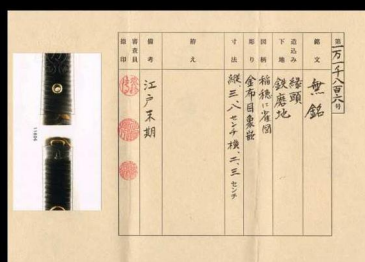 第一万一千八百六号
銘文 無銘
造込み 縁頭
下地 鉄磨地
図柄 稲穂に雀図
彫り 金布目象嵌
寸法 縦三、八センチ 横、二、三センチ
備考 江戸末期
審査員